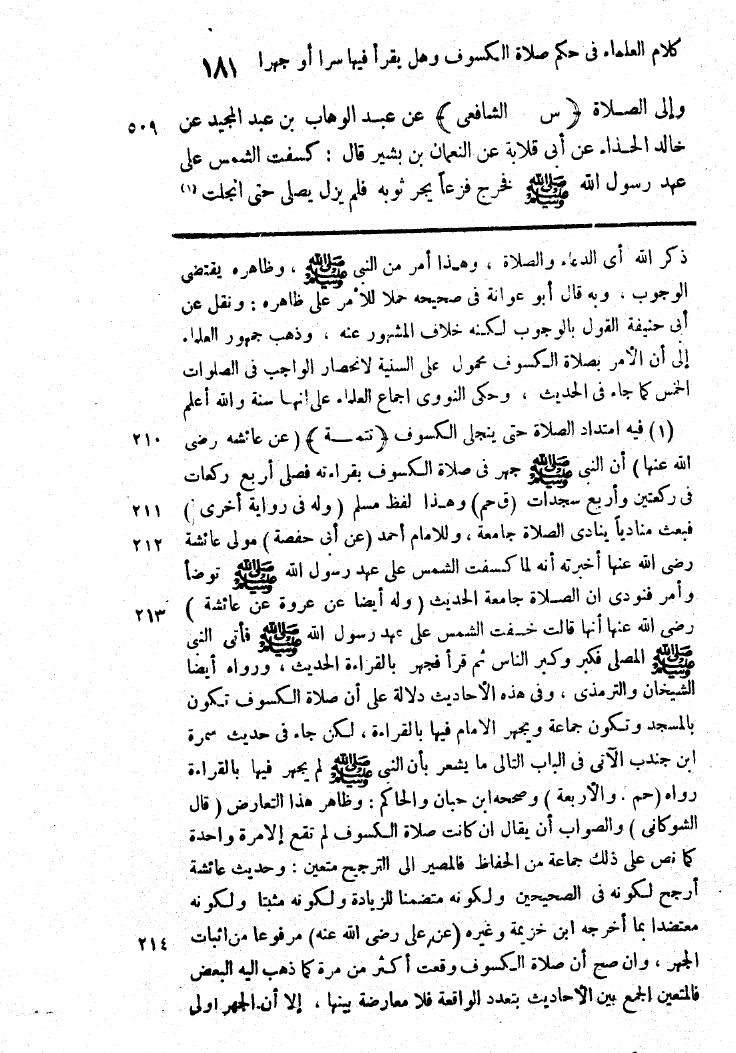 كلام العلماء فى حكم صلاة الكسوف وهل يقرأ فيها سرا أو جهرا ١٨١
وإلى الصـلاة ﴿ س الشافعى ﴾ عن عبـد الوهاب بن عبد المجيد عن ٥٠٩
خالد الحـذاء عن أبى قلابة عن النعمان بن بشير قال : كسفت الشمس على
عهد رسول الله ﷺ فخرج فزعاً يجر ثوبه فلم يزل يصلى حتى انجلت (١)
ذكر الله أى الدعاء والصلاة ، وهـذا أمر من النبى ﷺ ، وظاهره يقتضى
الوجوب ، وبه قال أبو عوانة فى صحيحه حملا للأمر على ظاهره : ونقل عن
أبى حنيفة القول بالوجوب لكنه خلاف المشهور عنه ، وذهب جمهور العلماء
إلى أن الأمر بصلاة الكسوف محمول على السنية لانحصار الواجب فى الصلوات
الخمس كما جاء فى الحديث ، وحكى النووى اجماع العلماء على انهـا سنة والله أعلم
(١) فيه امتداد الصلاة حتى ينجلى الكسوف ﴿ تتمـــة ﴾ ( عن عائشه رضى ٢١٠
الله عنها ) أن النبى ﷺ جهر فى صلاة الكسوف بقراءته فصلى أربع ركعات
فى ركعتين وأربع سجدات (ق حم) وهـذا لفظ مسلم ( وله فى رواية أخرى ) ٢١١
فبعث منادياً ينادى الصلاة جامعة ، وللامام أحمد (عن أبى حفصة ) مولى عائشة ٢١٢
رضى الله عنها أخبرته أنه لما كسفت الشمس على عهد رسول الله ﷺ توضأ
وأمر فنودى ان الصـلاة جامعة الحديث ( وله أيضا عن عروة عن عائشة ) ٢١٣
رضى الله عنها أنها قالت خسفت الشمس على عهد رسول الله ﷺ فأتى النبى
ﷺ المصلى فكبر وكبر الناس ثم قرأ فجهر بالقراءة الحديث ، ورواه أيضا
الشيخان والترمذى ، وفى هذه الأحاديث دلالة على أن صلاة الكسوف تكون
بالمسجد وتكون جماعة ويجهر الامام فيها بالقراءة ، لكن جاء فى حديث سمرة
ابن جندب الآتى فى الباب التالى ما يشعر بأن النبى ﷺ لم يجهر فيها بالقراءة
رواه (حم . والأربعة ) وصححه ابن حبان والحاكم : وظاهر هذا التعارض ( قال
الشوكانى ) والصواب أن يقال ان كانت صلاة الكسوف لم تقع إلا مرة واحدة
كما نص على ذلك جماعة من الحفاظ فالمصير الى الترجيح متعين : وحديث عائشة
أرجح لكونه فى الصحيحين ولكونه متضمنا للزيادة ولكونه مثبتا ولكونه
معتضدا بما أخرجه ابن خزيمة وغيره (عن على رضى الله عنه) مرفوعا من اثبات ٢١٤
الجهر ، وان صح أن صلاة الكسوف وقعت أكثر من مرة كما ذهب اليه البعض
فالمتعين الجمع بين الأحاديث بتعدد الواقعة فلا معارضة بينها ، إلا أن الجهر اولى